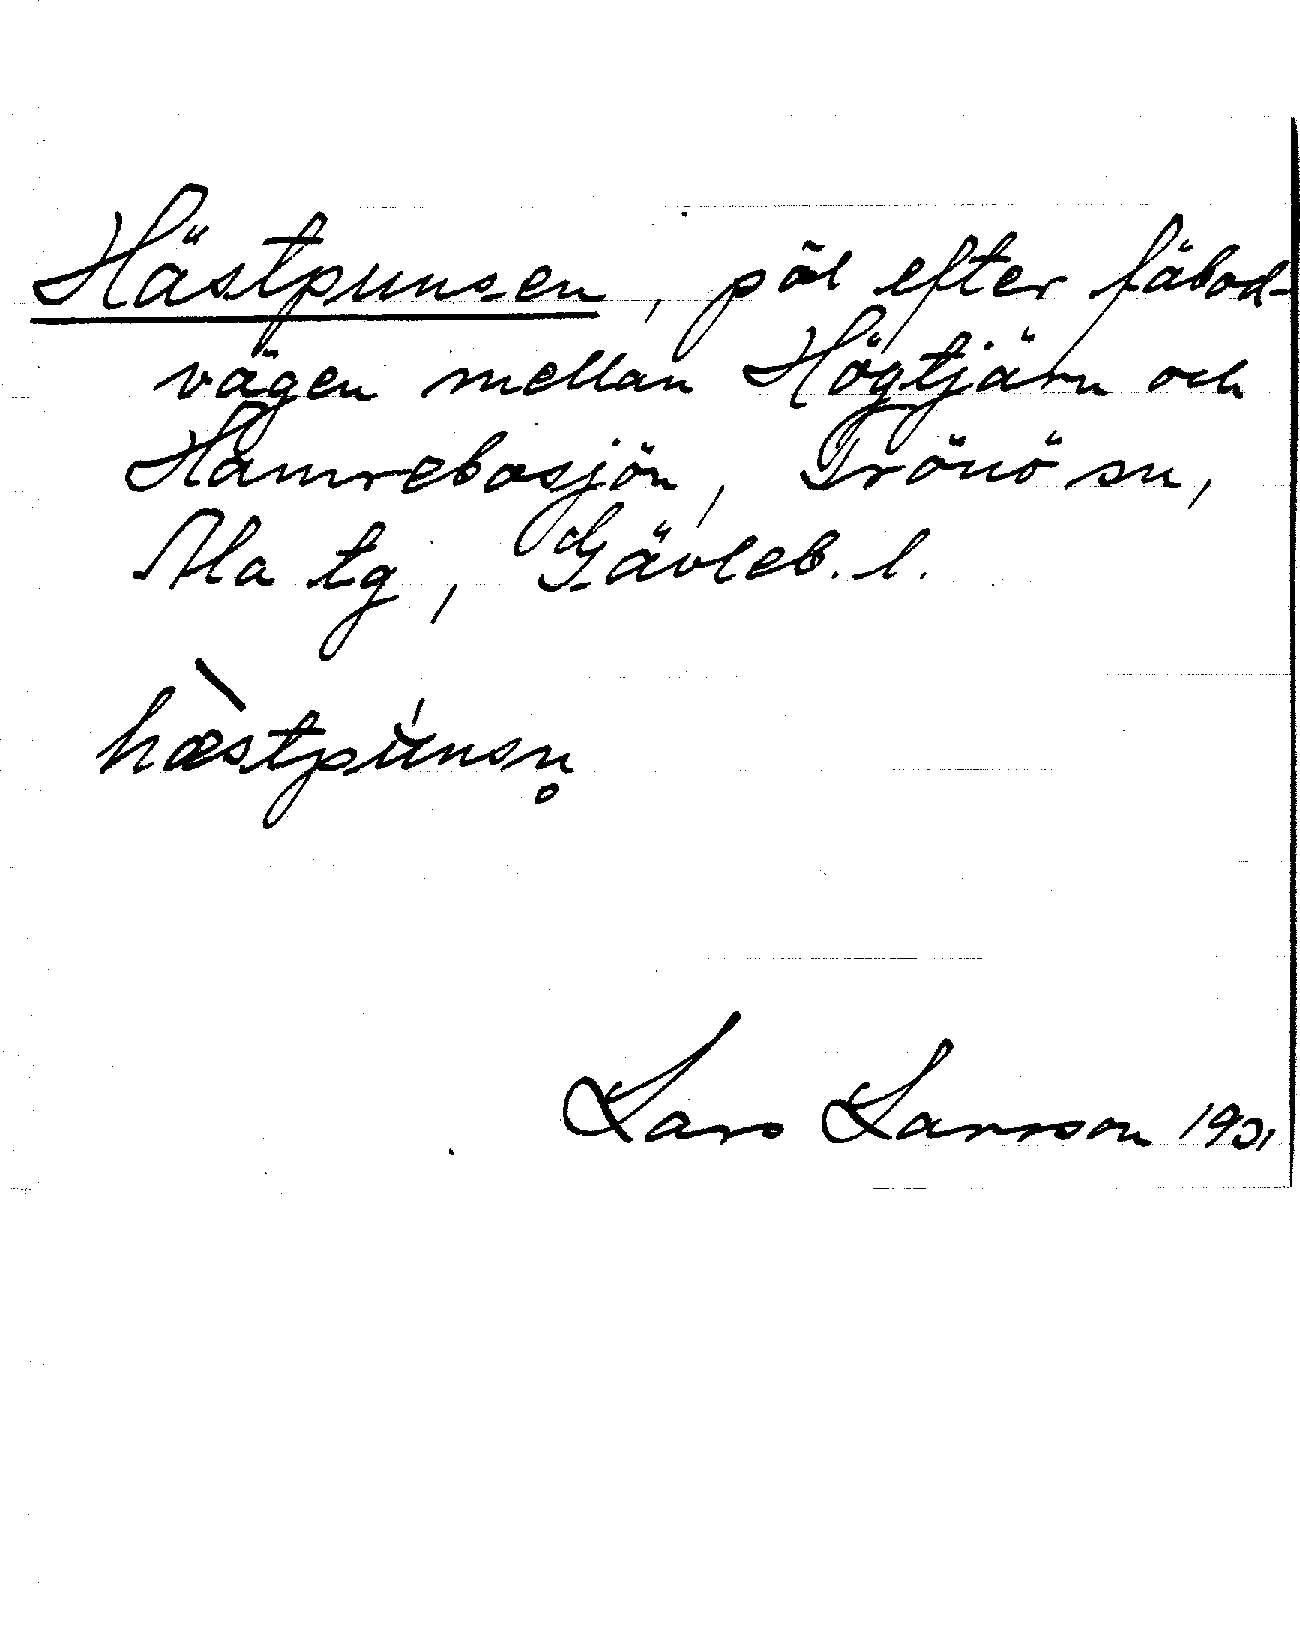 Hästpunsen, pöl efter fäbod-
vägen mellan Högtjärn och
Hamrebosjön, Trönö sn,
Ala tg, Gävleb. l.
hæ̀stpúnsn̥
Lars Larsson 1931